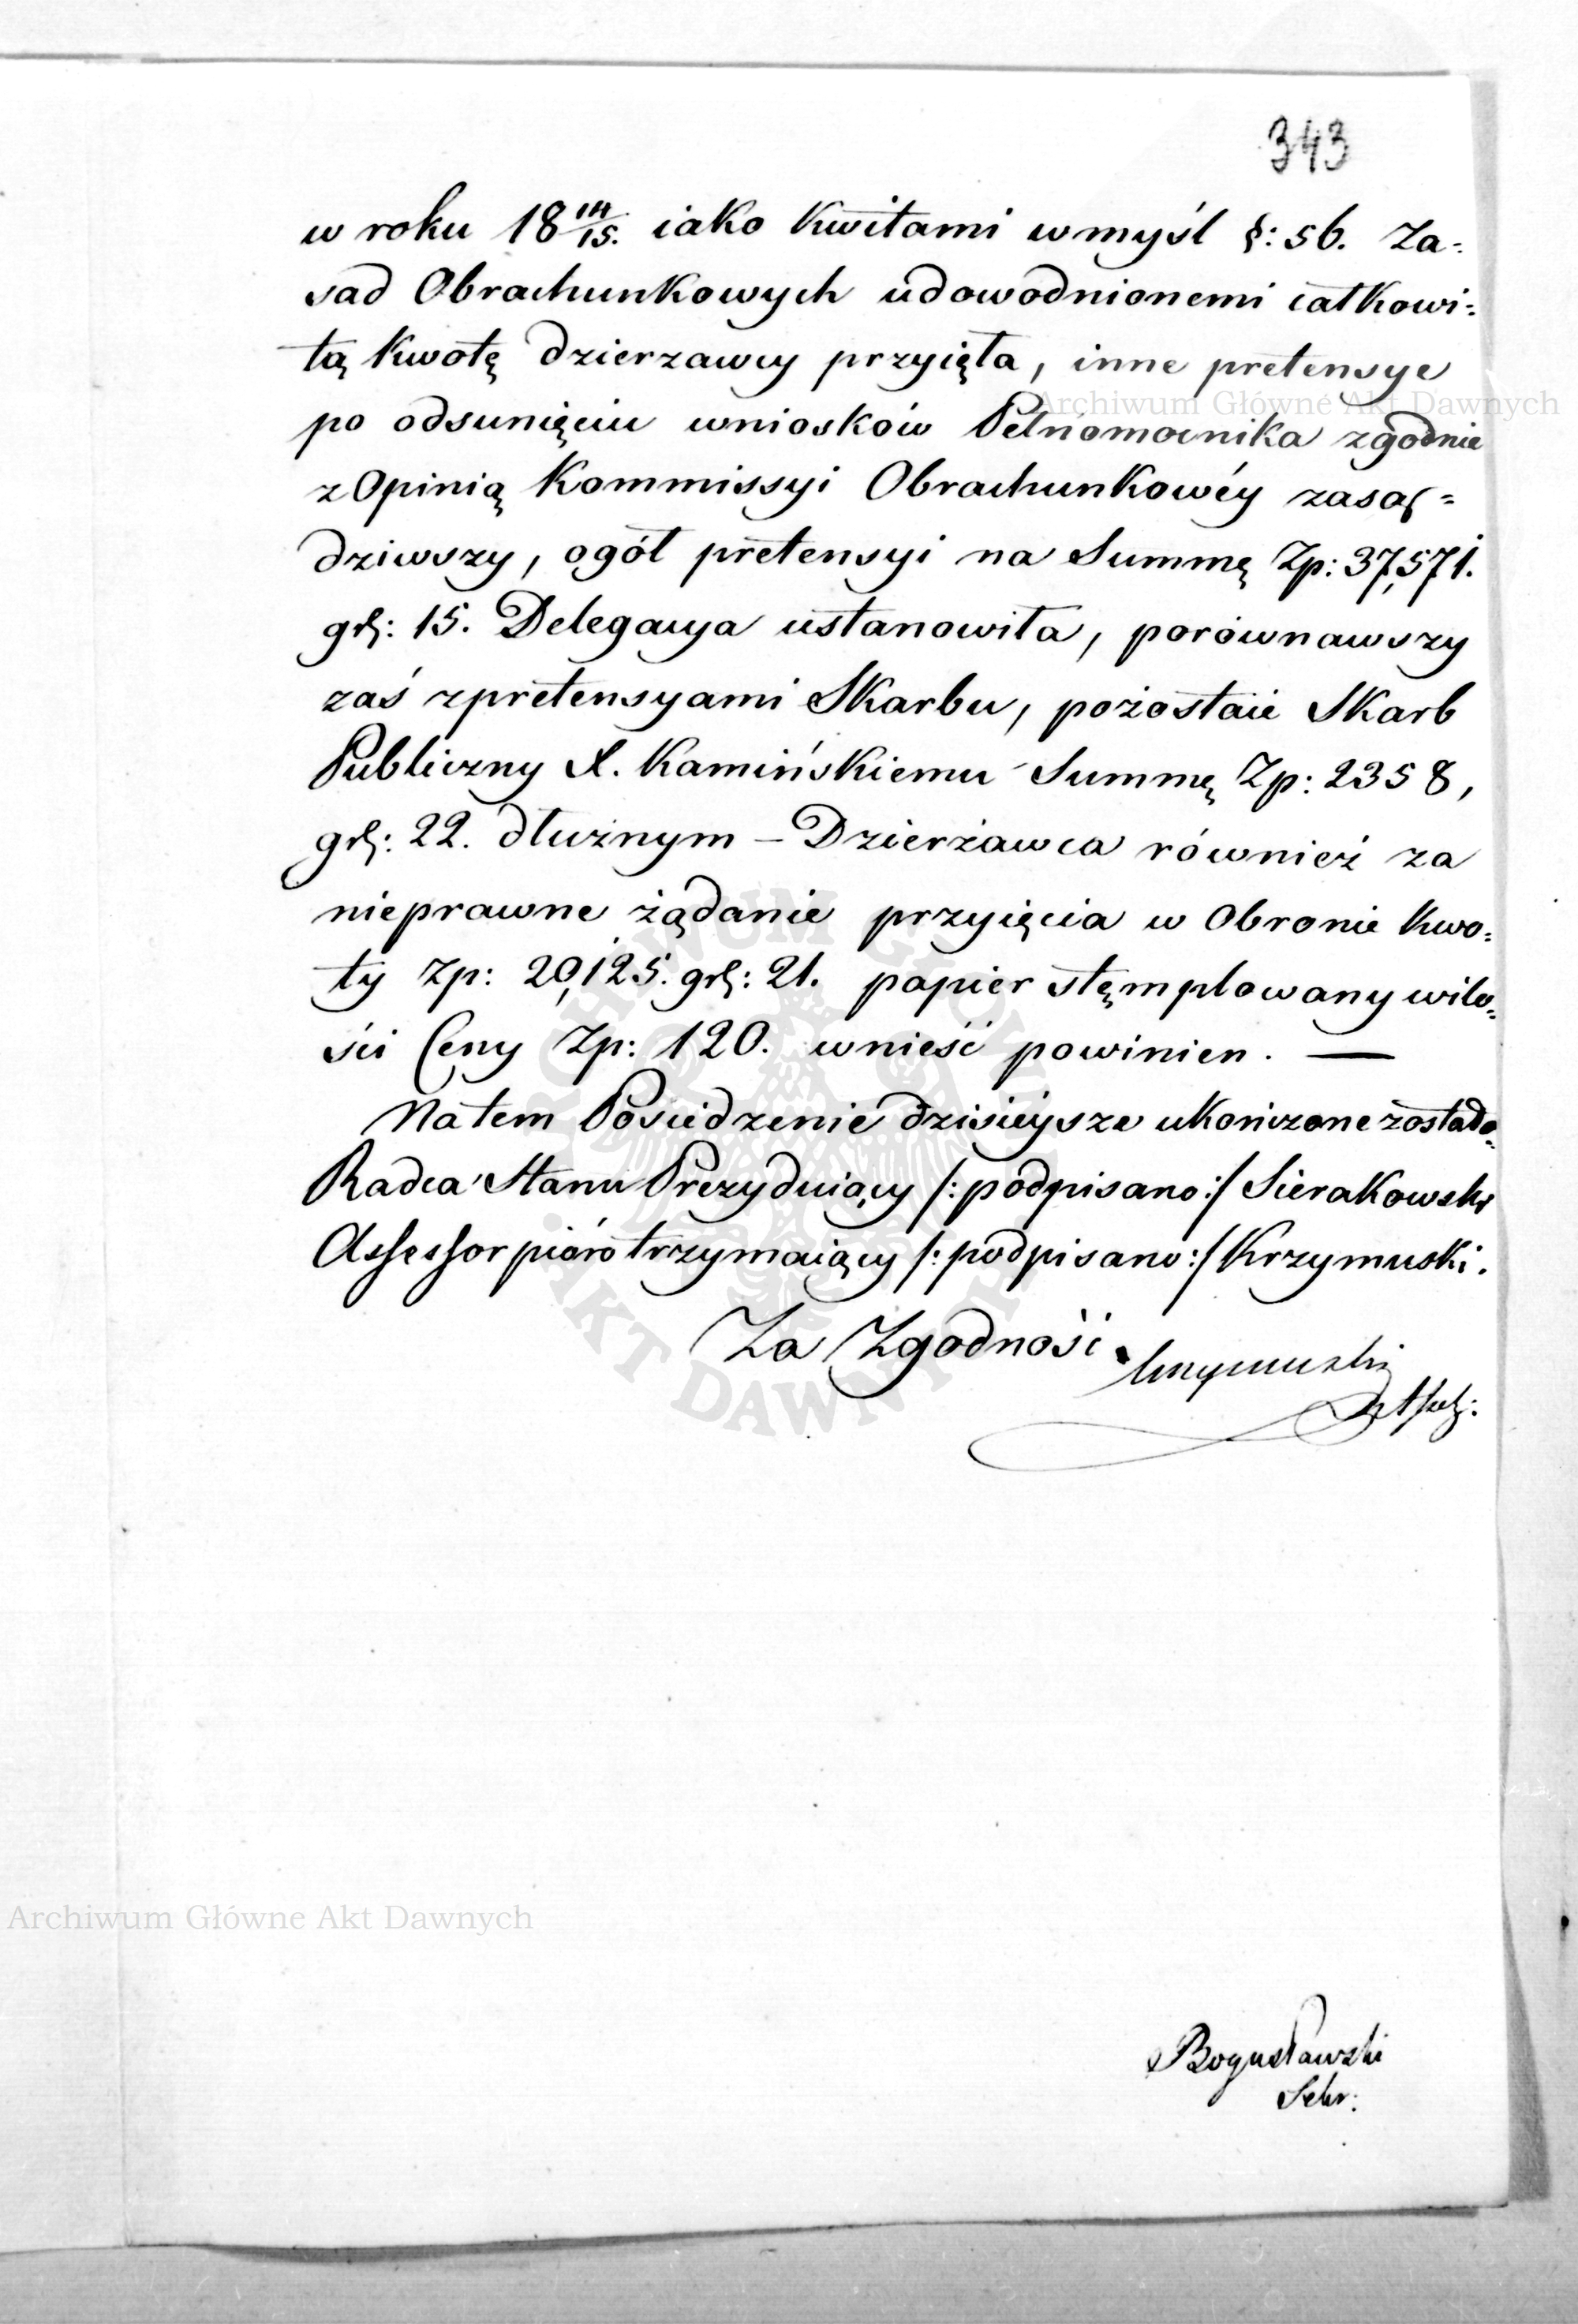 343
w roku 18 14/15. iako Kwitami w myśl §: 56. Za=
sad Obrachunkowych udowodnionemi całkowi=
tą Kwotę dzierzawcy przyięła, inne pretensye
po odsunięciu wniosków Pełnomocnika zgodnie
z Opinią Kommissyi Obrachunkowéy zasą=
dziwszy, ogół pretensyi na Summę Zp: 37,571.
gr: 15. Delegacya ustanowiła, porównawszy
zaś z pretensyami Skarbu, pozostaie Skarb
Publiczny X. Kamińskiemu Summę Zp: 2358,
gr: 22. dłużnym – Dzierżawca również za
nieprawne żądanie przyięcia w Obronie Kwo=
ty Zp: 20,125. gr: 21. papier stęmplowany w ilo=
ści Ceny Zp: 120. wnieść powinien. —
Na tem Posiedzenie dzisieysze ukończone zostało.
Radca Stanu Prezyduiący /: podpisano :/ Sierakowski
Assessor pióro trzymaiący /: podpisano :/ Krzymuski.
Za Zgodność Krzymuski
Bogusławski
Sekr:
Archiwum Główne Akt Dawnych
Archiwum Główne Akt Dawnych